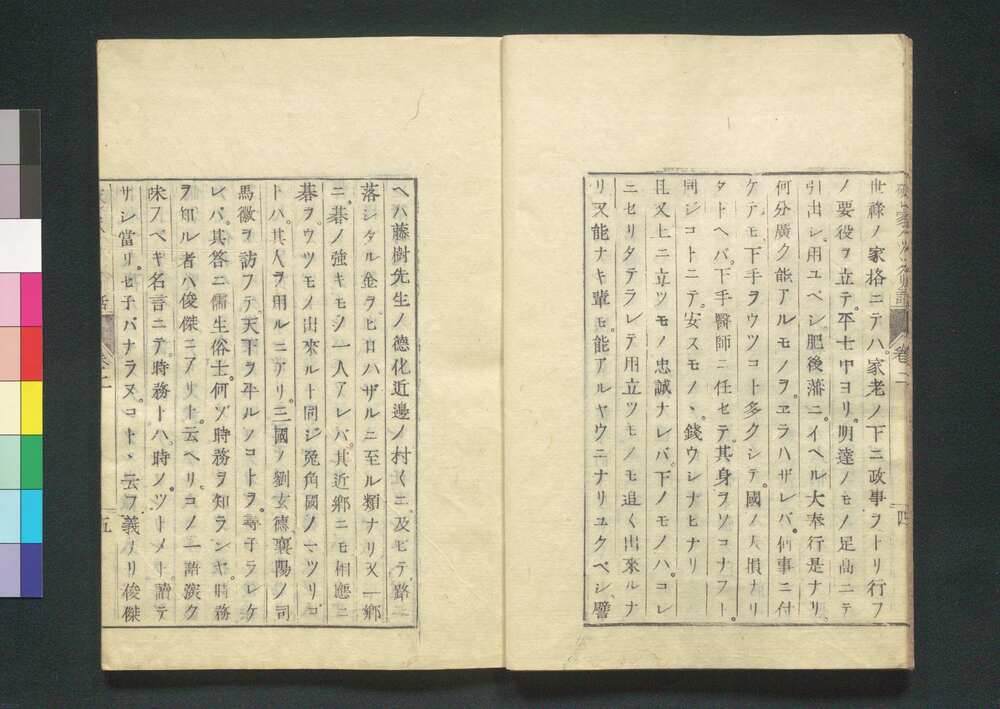 世祿ノ家格ニテハ。家老ノ下ニ政事ヲトリ行フ
ノ要役ヲ立テ。平士中ヨリ。明達ノモノ足高ニテ
引出シ。用ユベシ。肥後藩ニ。イヘル大奉行是ナリ。
何分廣ク能アルモノヲ。ヱラハザレバ。何事ニ付
ケテモ下手ヲウツコト多クシテ。國ノ大損ナリ
タトヘバ。下手醫師ニ任セテ。其身ヲソコナフト。
同ジコトニテ。安スモノヽ錢ウシナヒナリ
且又上ニ立ツモノ忠誠ナレバ。下ノモノハ。コレ
ニセリタテラレテ用立ツモノモ追〱出來ルナ
リ又能ナキ輩モ。能アルヤウニナリユクベシ。譬
卷二
四
ヘハ藤樹先生ノ德化近邊ノ村〱ニ及ビテ路ニ
落シタル金ヲ。ヒロハザルニ至ル類ナリ又一郷
ニ。碁ノ強キモノ一人アレバ。其近郷ニモ相應ニ
碁ヲウツモノ出來ルト同ジ兎角國ノ一ツリゴ
トハ。其人ヲ用ルニアリ。三國ノ劉玄德襄陽ノ司
馬徽ヲ訪フテ天下ヲ平ルノコトヲ。尋子ラレケ
レバ。其答ニ儒生俗士。何ゾ時務ヲ知ラシヤ。時務
ヲ知ル者ハ俊傑ニアリト。云ヘリ。コノ一語深ク
味フベキ名言ニテ。時務トハ。時ノツトメト。讀テ
サシ當リ。セ子バナラヌコトヽ云フ義ナリ俊傑
卷二
五